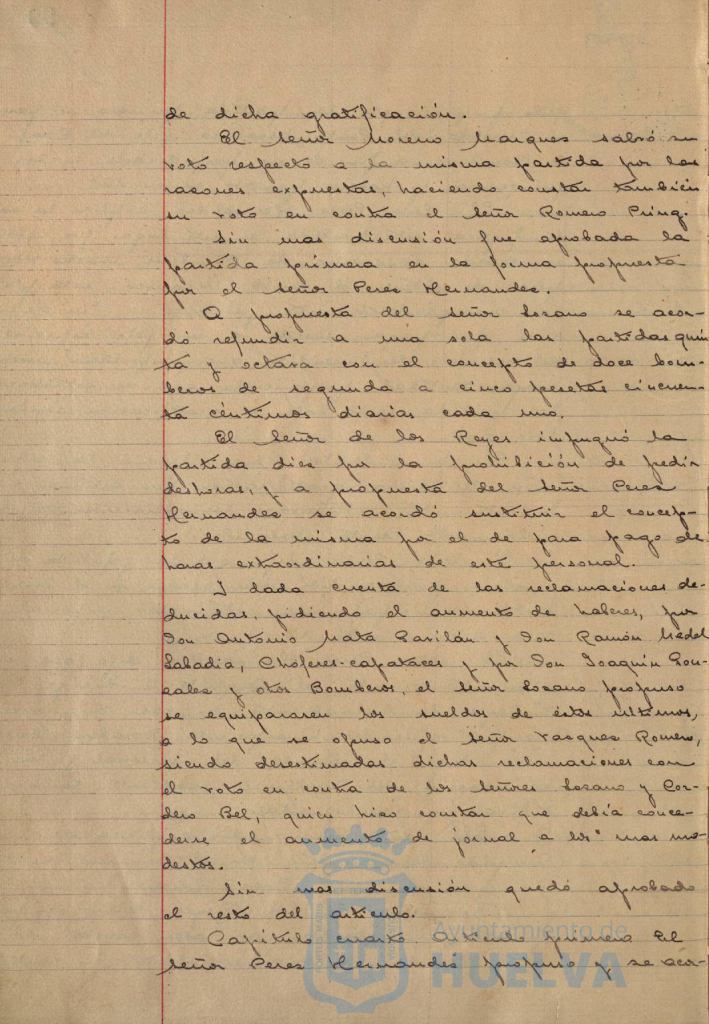 de dicha gratificación.
El Señor Moreno Marques salvó su
voto respecto a la misma partida por las
rasones expuestas, haciendo constar también
su voto en contra el Señor Romero Prinq.
Sin mas discusión fue aprobada la
partida primera en la forma propuesta
por el Señor Peres Hernandes.
A propuesta del Señor Losano se acor-
dó refundir a una sola las partidas quin
ta y octava con el concepto de doce bom-
beros de segunda a cinco pesetas cincuen-
ta céntimos diarias cada uno.
El Señor de los Reyes impugnó la
partida dies por la prohibición de pedir
deshoras, y a propuesta del Señor Peres
Hernandes se acordó sustituir el concep-
to de la misma por el de para pago de
horas extraordinarias de este personal.
I dada cuenta de las reclamaciones de-
ducidas, pidiendo el aumento de haberes, por
Don Antonio Mata Gavilán y Don Ramón Medel
Labadia, Chóferes-capataces y por Don Joaquín Gon-
sales y otros Bomberos, el Señor Losano propuso
se equipararen los sueldos de éstos últimos,
a lo que se opuso el Señor Vasques Romero,
siendo desestimadas dichas reclamaciones con
el voto en contra de los Señores Losano y Cor-
dero Bel, quien hiso constar que debía conce-
derse el aumento de jornal a los "mas mo-
destos.
Sin mas discusión quedó aprobado
el resto del artículo.
Capítulo cuarto Artículo primero El
Señor Peres Hernandes propuso y se acor-
Ayuntamiento de
HUELVA